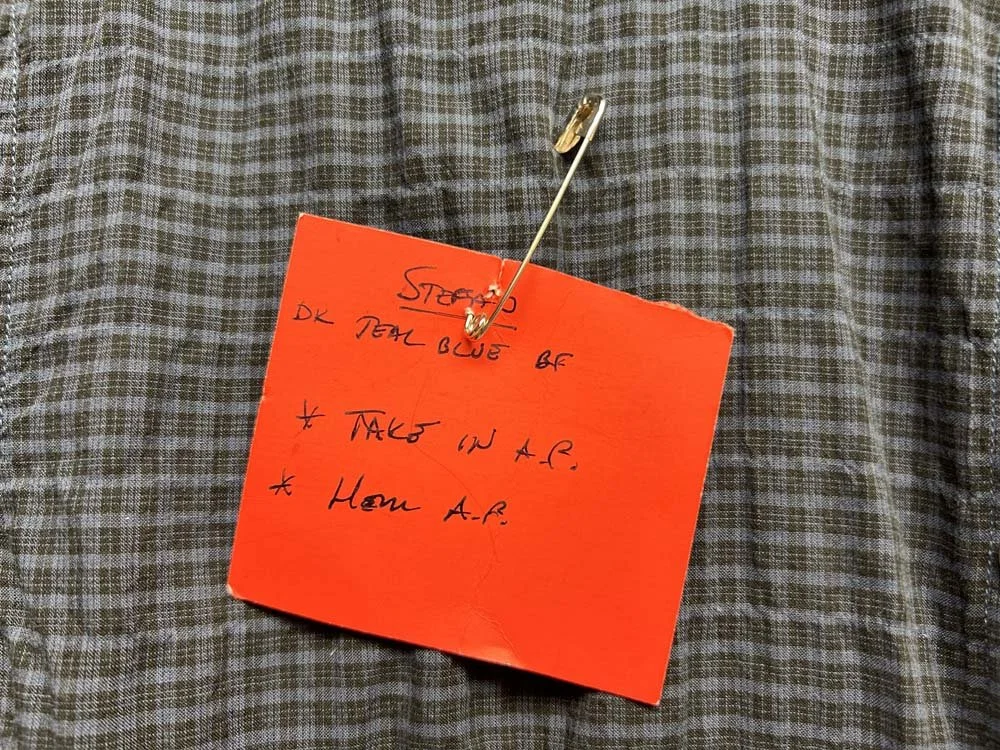 DK TEAL BLUE BF
* TAKE IN A.P.
* Hem A.P.